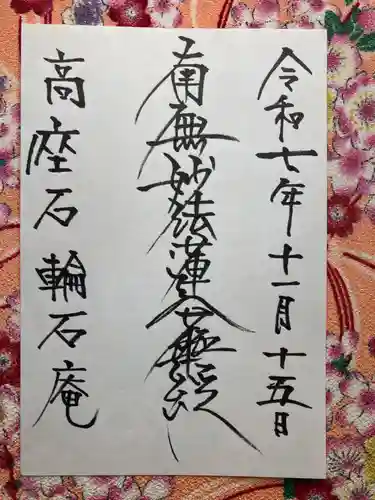 令和七年十一月十五日
南無妙法蓮
高座石輪石庵